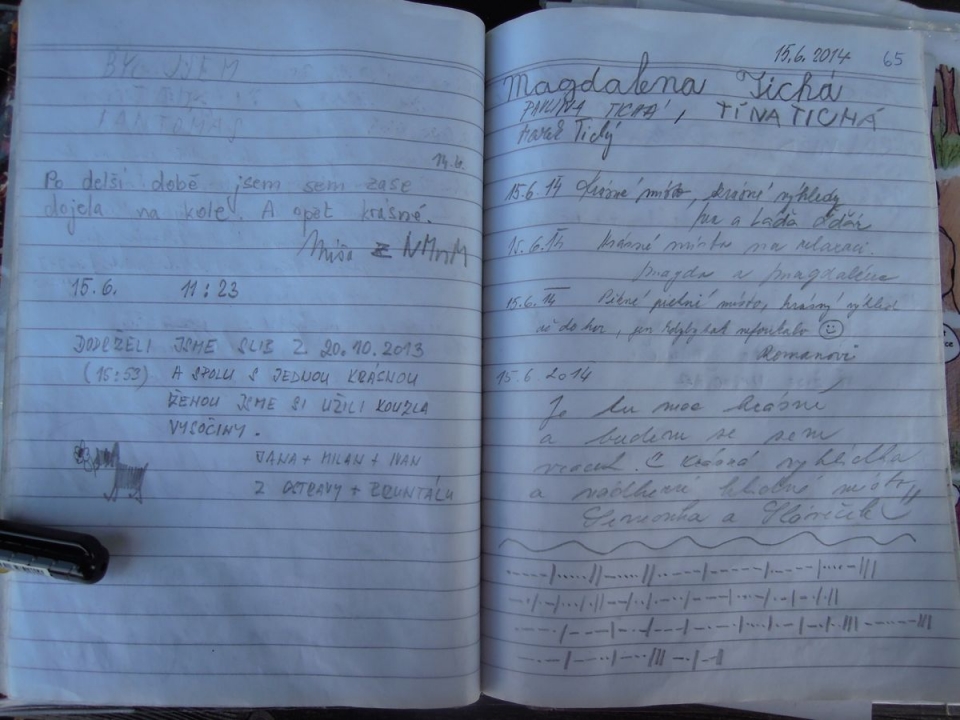 BYL JSEM
FANTOMAS
14.6.
Po delší době jsem sem zase
dojela na kole. A opět krásné.
Míša z NMnM
15.6. 11:23
DODRŽELI JSME SLIB Z 20.10.2013
(15:53) A SPOLU S JEDNOU KRÁSNOU
ŽENOU JSME SI UŽILI KOUZLA
VYSOČINY.
JANA + MILAN + IVAN
Z OSTRAVY + BRUNTÁLU
15.6.2014 65
Magdalena Tichá
PAVLÍNA TICHÁ, TÍNA TICHÁ
Marek Tichý
15.6.14 Krásné místo, krásné výhledy
a Láďa
15.6.14 Krásné místo na relaxaci.
Magda a Magdaléna
15.6.14 Pěkné místo, krásný výhled
až do hor, jen kdyby tak nefoukalo
Romanovi
15.6.2014
Je tu moc krásně
a budem se sem
vracet. Krásná vyhlídka
a nádherné klidné místo
a Slávěček